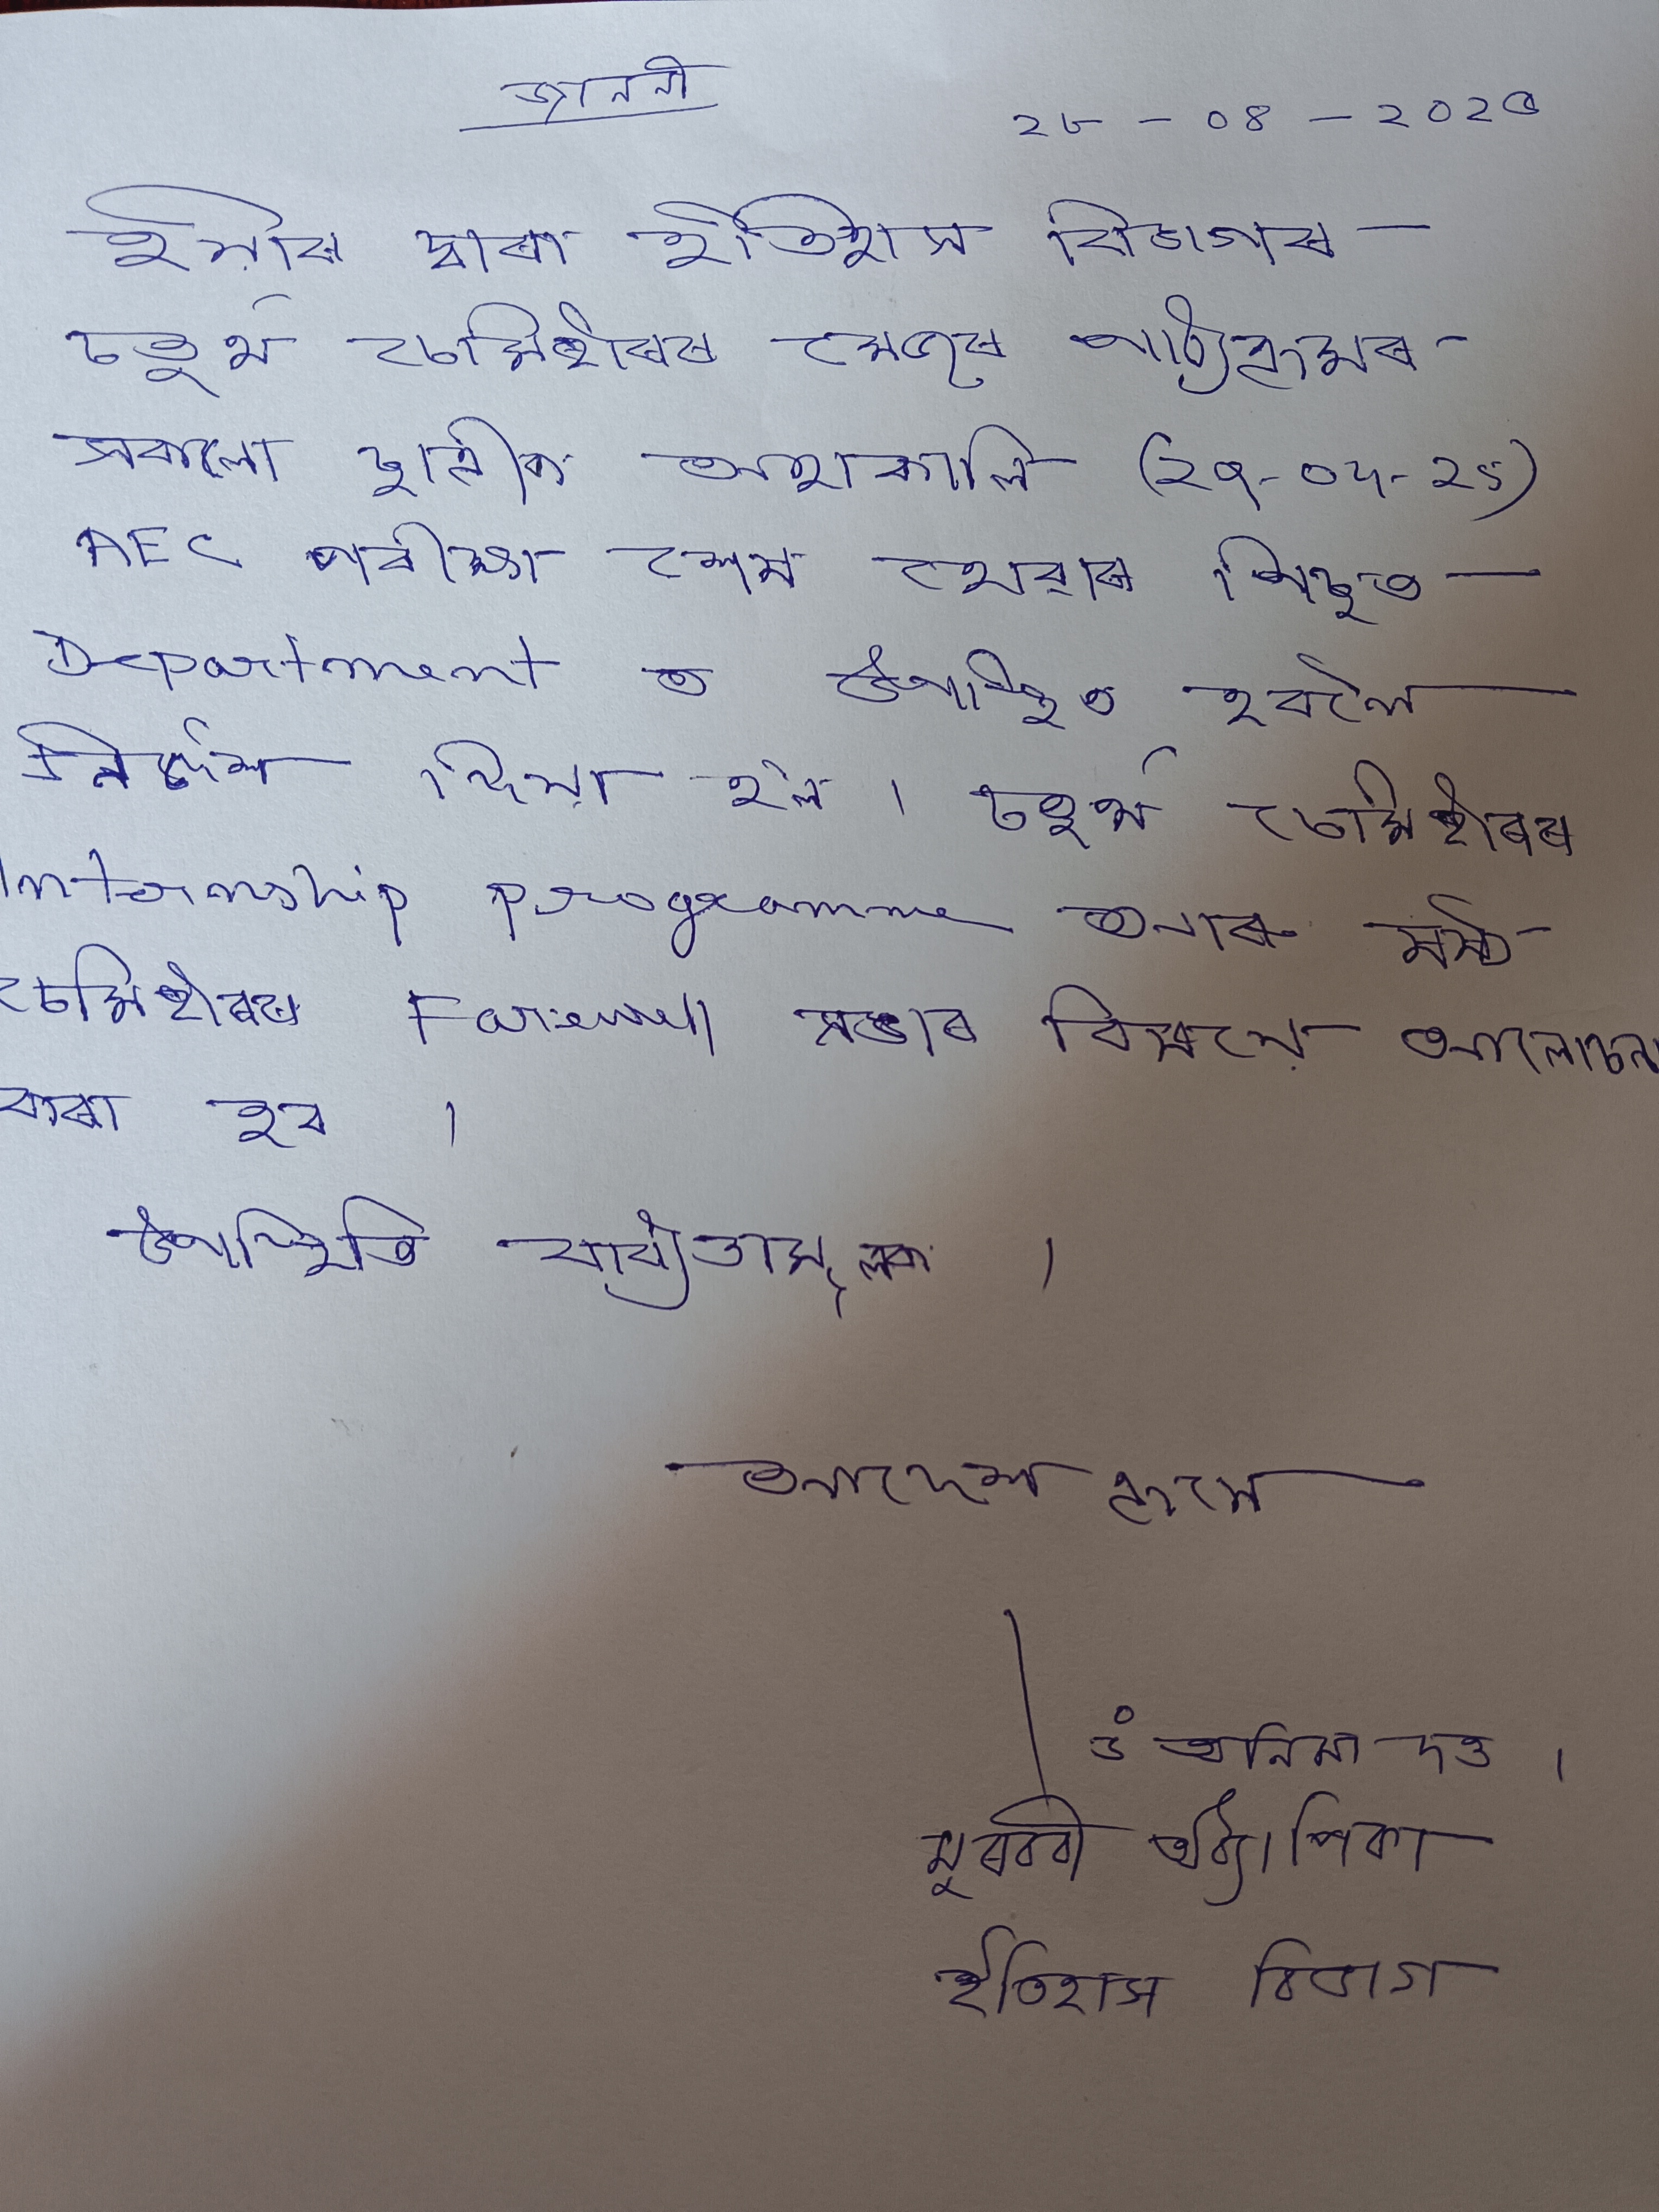 জাননী
২৮ - ০৪ - ২০২৫
ইয়াৰ দ্বাৰা ইতিহাস বিভাগৰ
চতুৰ্থ চেমিষ্টাৰৰ মেজৰ পাঠ্যক্ৰমৰ
সকলো ছাত্ৰীক অহাকালি (২৯-০৫-২৫)
AEC পৰীক্ষা শেষ হোৱাৰ পিছত
Department ত উপস্থিত হবলৈ
নিৰ্দেশ দিয়া হল । চতুৰ্থ চেমিষ্টাৰৰ
Internship programme আৰু ষষ্ঠ
চেমিষ্টাৰৰ Farewell সভাৰ বিষয়ে আলোচনা
কৰা হব ।
উপস্থিতি বাধ্যতামূলক ।
আদেশ ক্ৰমে
ডঁ অনিমা দত্ত ।
মূৰব্বী অধ্যাপিকা
ইতিহাস বিভাগ